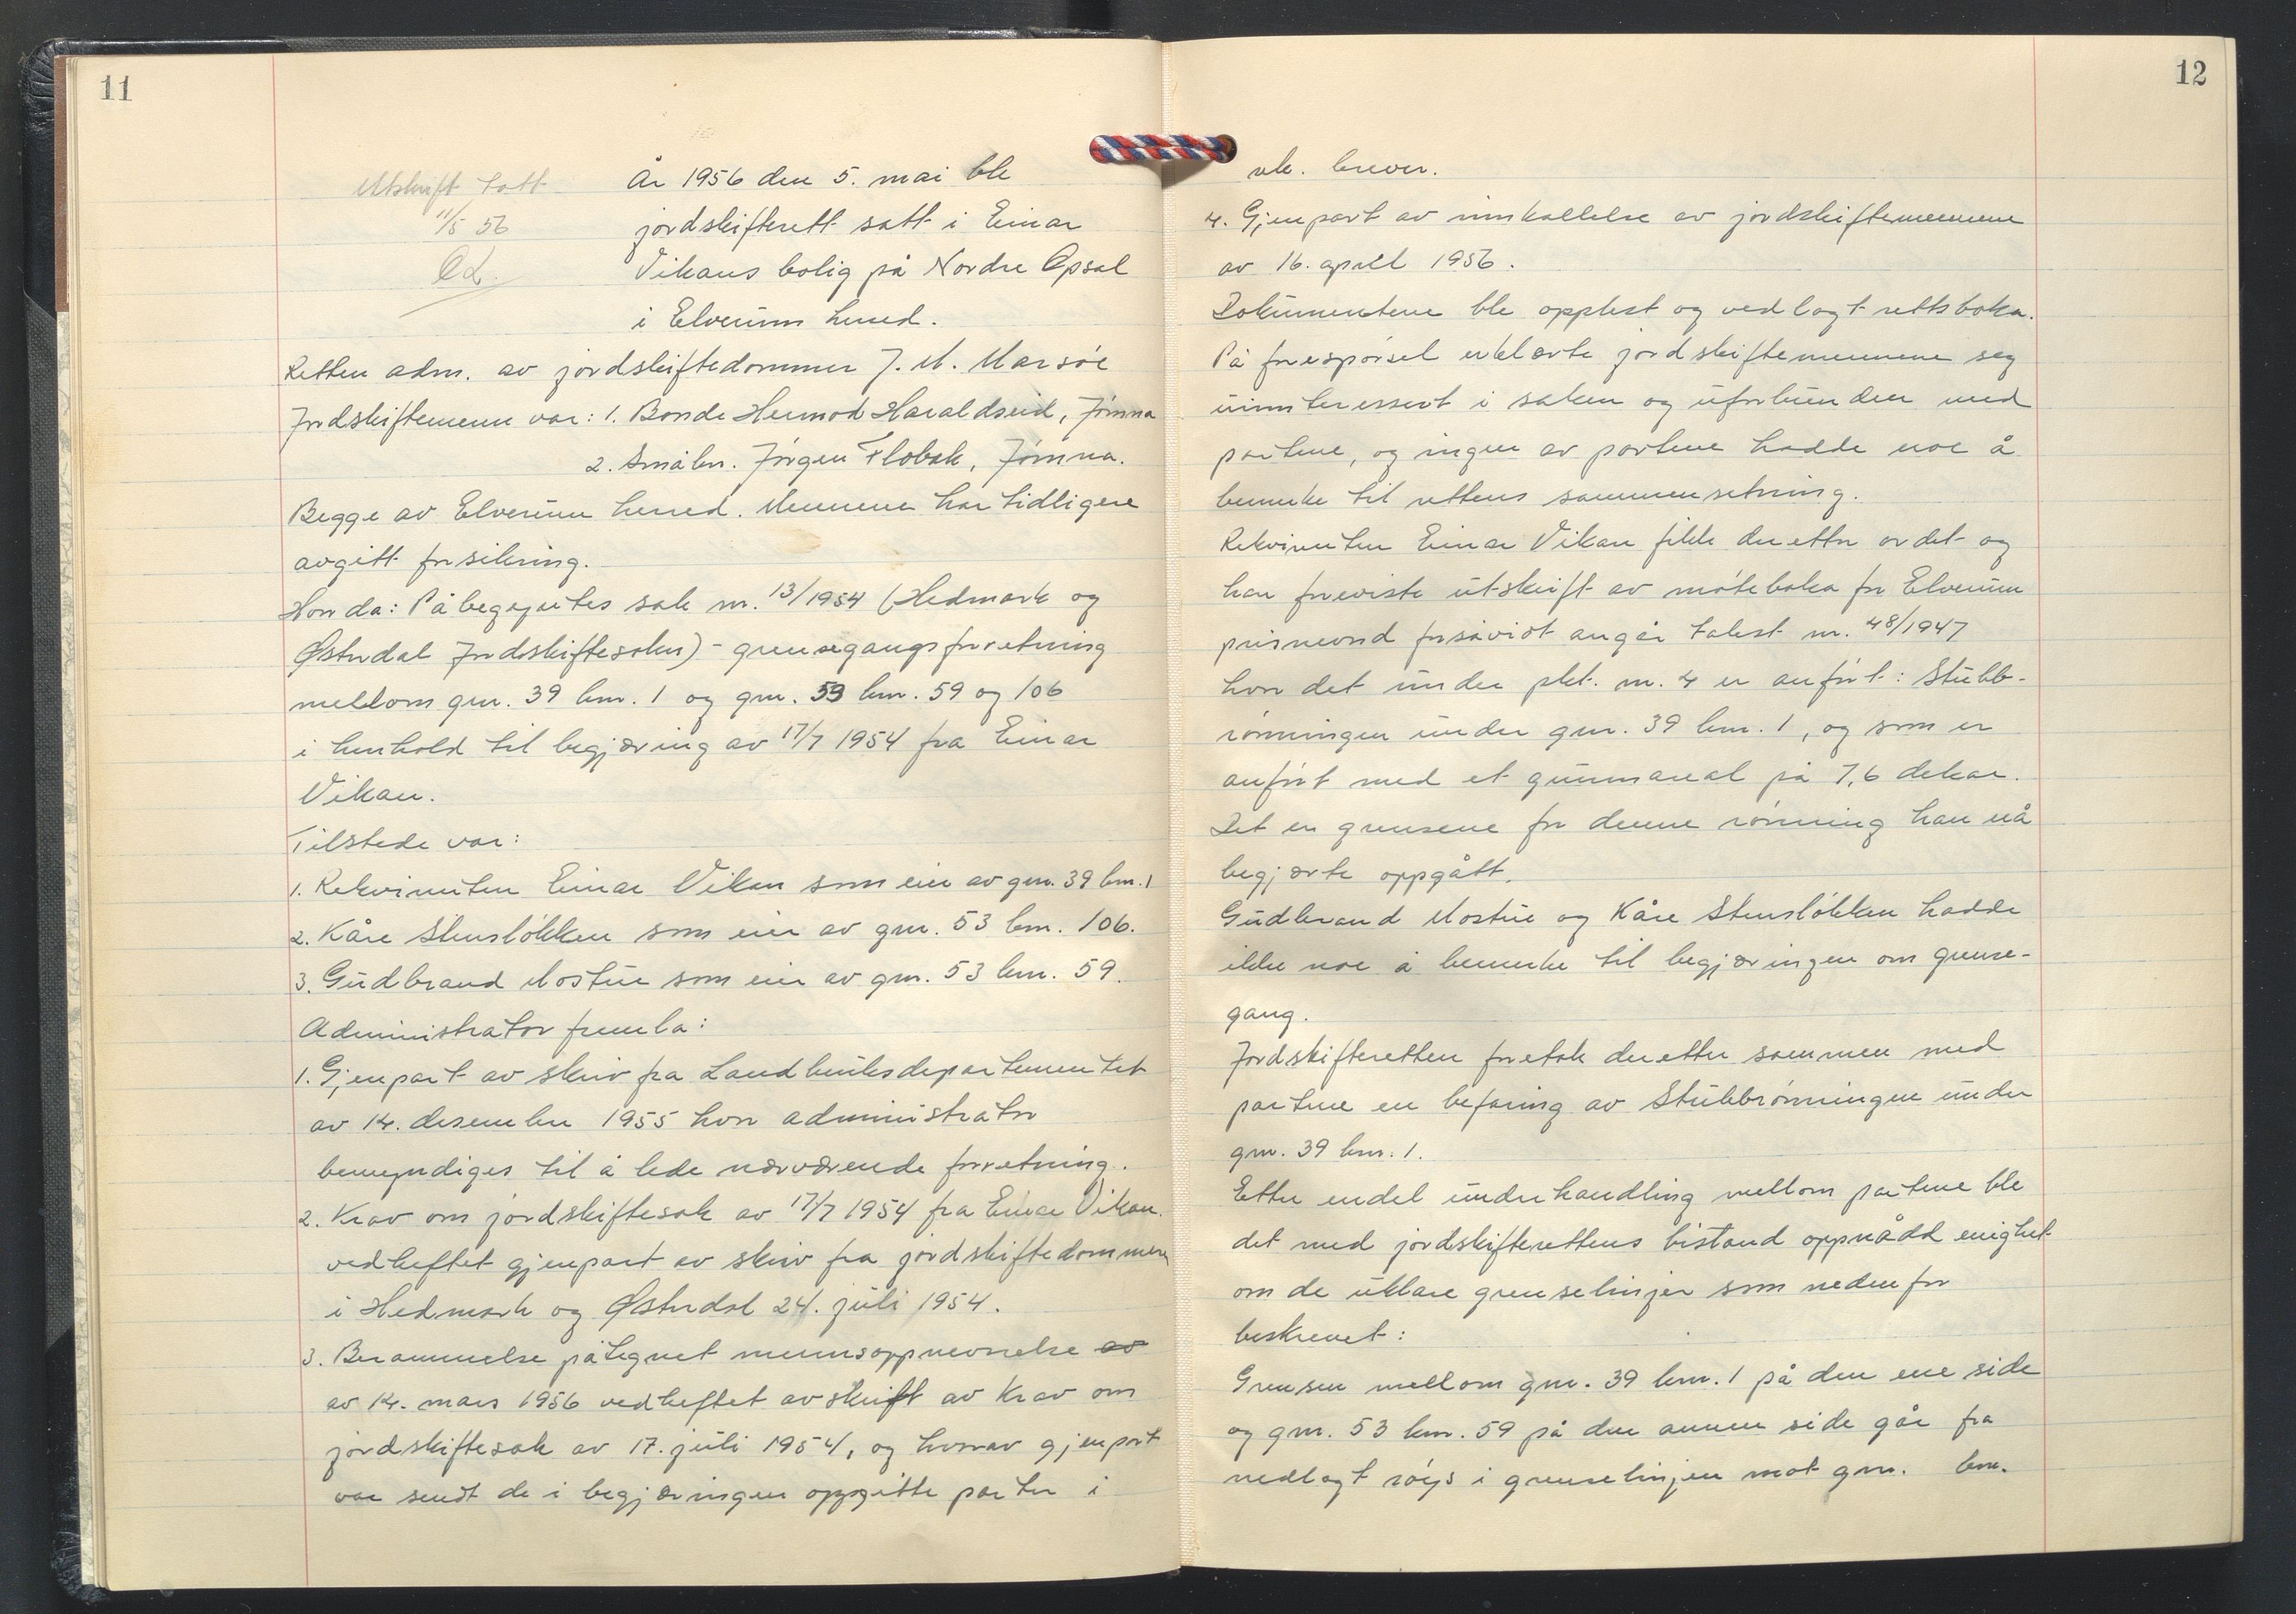 11
Utskrift tatt
11/5 56
År 1956 den 5. mai ble
jordskifterett satt i Einar
Vikans bolig på Nordre Opsal
i Elverum herred.
Retten adm. av jordskiftedommer J. M. Marsöe
Jordskiftemenn var: 1. Bonde Hermod Haraldseid, Jömna
2. Småbr. Jörgen Flobak, Jömna.
Begge av Elverum herred. Mennene har tidligere
avgitt forsikring.
Hvorda: Påbegyntes sak nr. 13/1954 (Hedmark og
Østerdal Jordskiftesokn) - grensegangsforretning
mellom gnr. 39 bnr. 1 og gnr. 53 bnr. 59 og 106
i henhold til begjæring av 17/7 1954 fra Einar
Vikan.
Tilstede var:
1. Rekvirenten Einar Vikan som eier av gnr. 39 bnr. 1
2. Kåre Stenslökken som eier av gnr. 53 bnr. 106.
3. Gudbrand Mostue som eier av gnr. 53 bnr. 59.
Administrator fremla:
1. Gjenpart av skriv fra Landbruksdepartementet
av 14. desember 1955 hvor administrator
bemyndiges til å lede nærværende forretning.
2. Krav om jordskiftesak av 17/7 1954 fra Einar Vikan.
vedheftet gjenpart av skriv fra jordskiftedommeren
i Hedmark og Østerdal 24. juli 1954.
3. Berammelse påtegnet mennsoppnevnelse av
av 14. mars 1956 vedheftet avskrift av krav om
jordskiftesak av 17. juli 1954, og hvorav gjenpart
var sendt de i begjæringen oppgitte parter i
12
rek. brever.
4. Gjenpart av innkallelse av jordskiftemennene
av 16. april 1956.
Dokumentene ble opplest og vedlagt rettsboka.
På forespørsel erklærte jordskiftemennene seg
uinteressert i saken og uforbunden med
partene, og ingen av partene hadde noe å
bemerke til rettens sammensetning.
Rekvirenten Einar Vikan fikk deretter ordet og
han foreviste utskrift av møteboka for Elverum
prisnevnd forsåvidt angår takst nr. 48/1947
hvor det under pkt. nr. 4 er anført: Stubb-
rönningen under gnr. 39 bnr. 1, og som er
anført med et grunnareal på 7,6 dekar.
Det er grensene for denne rönning han nå
begjærte oppgått.
Gudbrand Mostue og Kåre Stenslökken hadde
ikke noe å bemerke til begjæringen om grense-
gang.
Jordskifteretten foretok deretter sammen med
partene en befaring av Stubbrönningen under
gnr. 39 bnr. 1.
Etter endel underhandling mellom partene ble
det med jordskifterettens bistand oppnådd enighet
om de uklare grenselinjer som nedenfor
beskrevet:
Grensen mellom gnr. 39 bnr. 1 på den ene side
og gnr. 53 bnr. 59 på den annen side går fra
nedlagt röys i grenselinjen mot gnr. bnr.